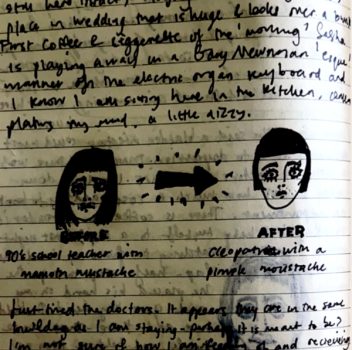 still here
place in wedding that is huge & looks over a
First coffee & ciggerette of the morning! Sasha
is playing away in a Gary Newman 'esque'
manner on the electric organ keyboard and
I know I am sitting here in the kitchen,
plating my mind, a little dizzy.
BEFORE
AFTER
90's school teacher with
mamoth mustache
Cleopatra with a
moustache
Just tried the doctors. It appears they are in the same
building as I am staying - perhaps it is meant to be?
I'm not sure of how I am feeling at and recieving